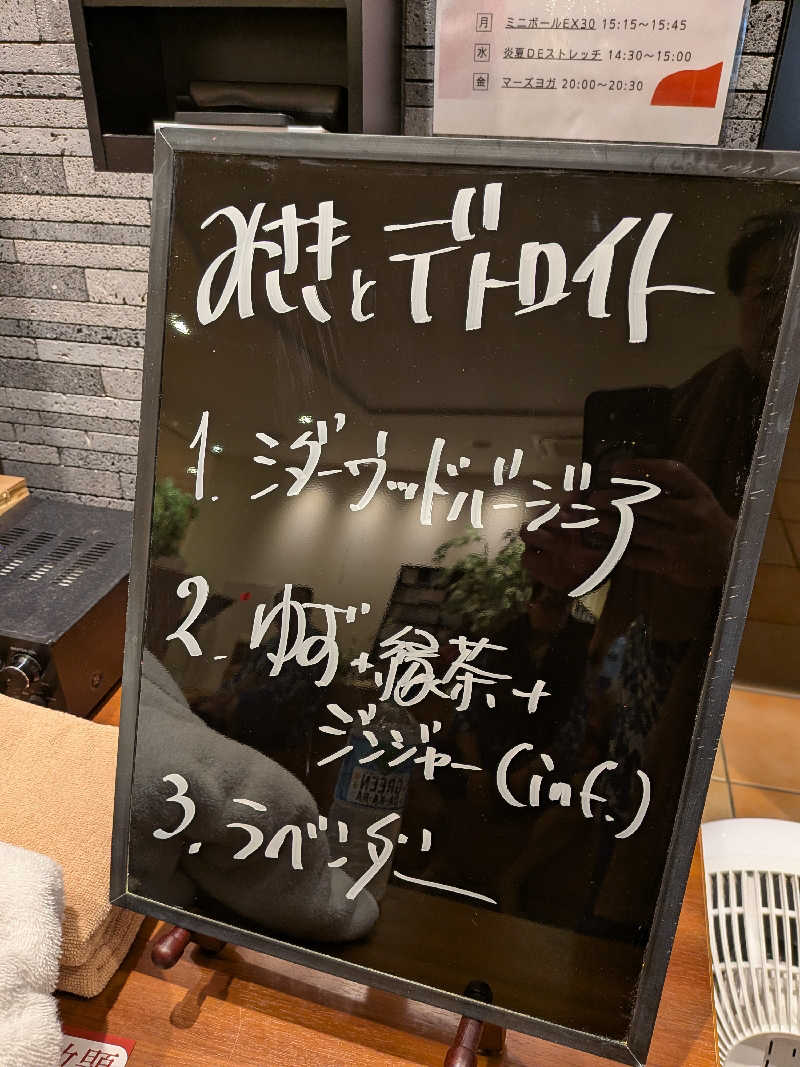 月 ミニボールEX30 15:15～15:45
水 炎夏DEストレッチ 14:30～15:00
金 マーズヨガ 20:00～20:30
みさきとデトロイト
1. シダーウッドバージニア
2. ゆず+緑茶+
ジンジャー(inf.)
GREEN
3. ラベンダー